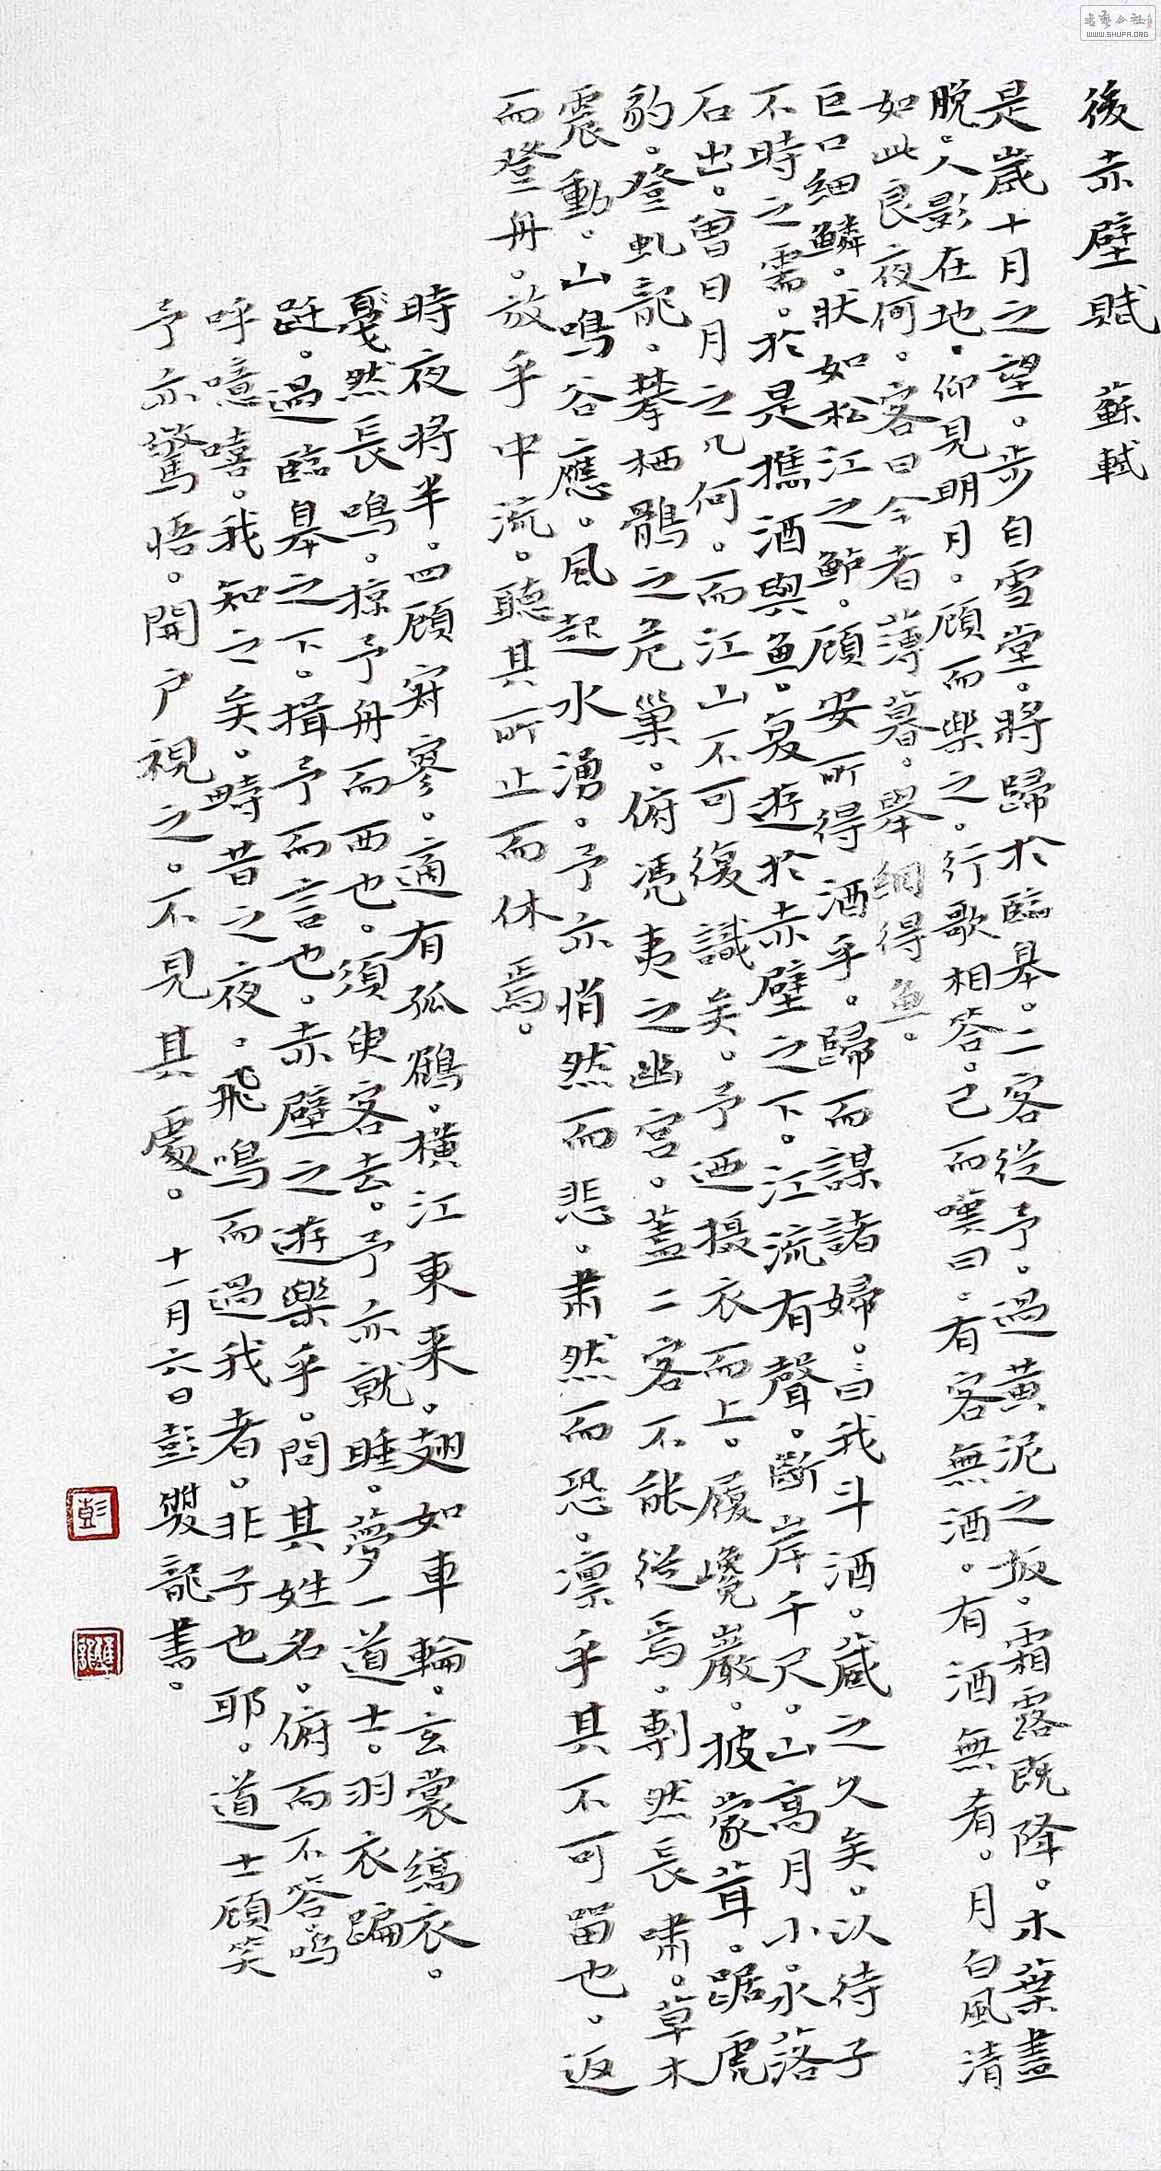 後赤壁賦 蘇軾
是歲十月之望。步自雪堂。將歸於臨皋。二客從予。過黃泥之坂。霜露既降。木葉盡
脫。人影在地。仰見明月。顧而樂之。行歌相答。已而嘆曰。有客無酒。有酒無肴。月白風清
如此良夜何。客曰今者薄暮。舉網得魚。
巨口細鱗。狀如松江之鲈。顧安所得酒乎。歸而謀諸婦。曰我斗酒。藏之久矣。以待子
不時之需。於是攜酒與魚。复遊於赤壁之下。江流有聲。斷岸千尺。山高月小。水落
石出。曾日月之几何。而江山不可復識矣。予迺摄衣而上。履巉巖。披蒙茸。踞虎
豹。登虬龍。攀栖鶻之危巢。俯馮夷之幽宮。蓋二客不能從焉。劃然長嘯。草木
震動。山鳴谷應。風起水湧。予亦悄然而悲。肅然而恐。凛乎其不可留也。返
而登舟。放乎中流。聽其所止而休焉。
時夜將半。四顧寂寥。適有孤鶴。橫江東来。翅如車輪。玄裳縞衣。
戛然長鳴。掠予舟而西也。須臾客去。予亦就睡。夢一道士。羽衣蹁
跹。過臨皋之下。揖予而言也。赤壁之遊樂乎。問其姓名。俯而不答。嗚
呼噫嘻。我知之矣。疇昔之夜。飛鳴而過我者。非子也耶。道士顧笑
予亦驚悟。開户視之。不見其處。 十一月六日彭雙龍書。
彭
書藝公社
WWW.SHUFA.ORG